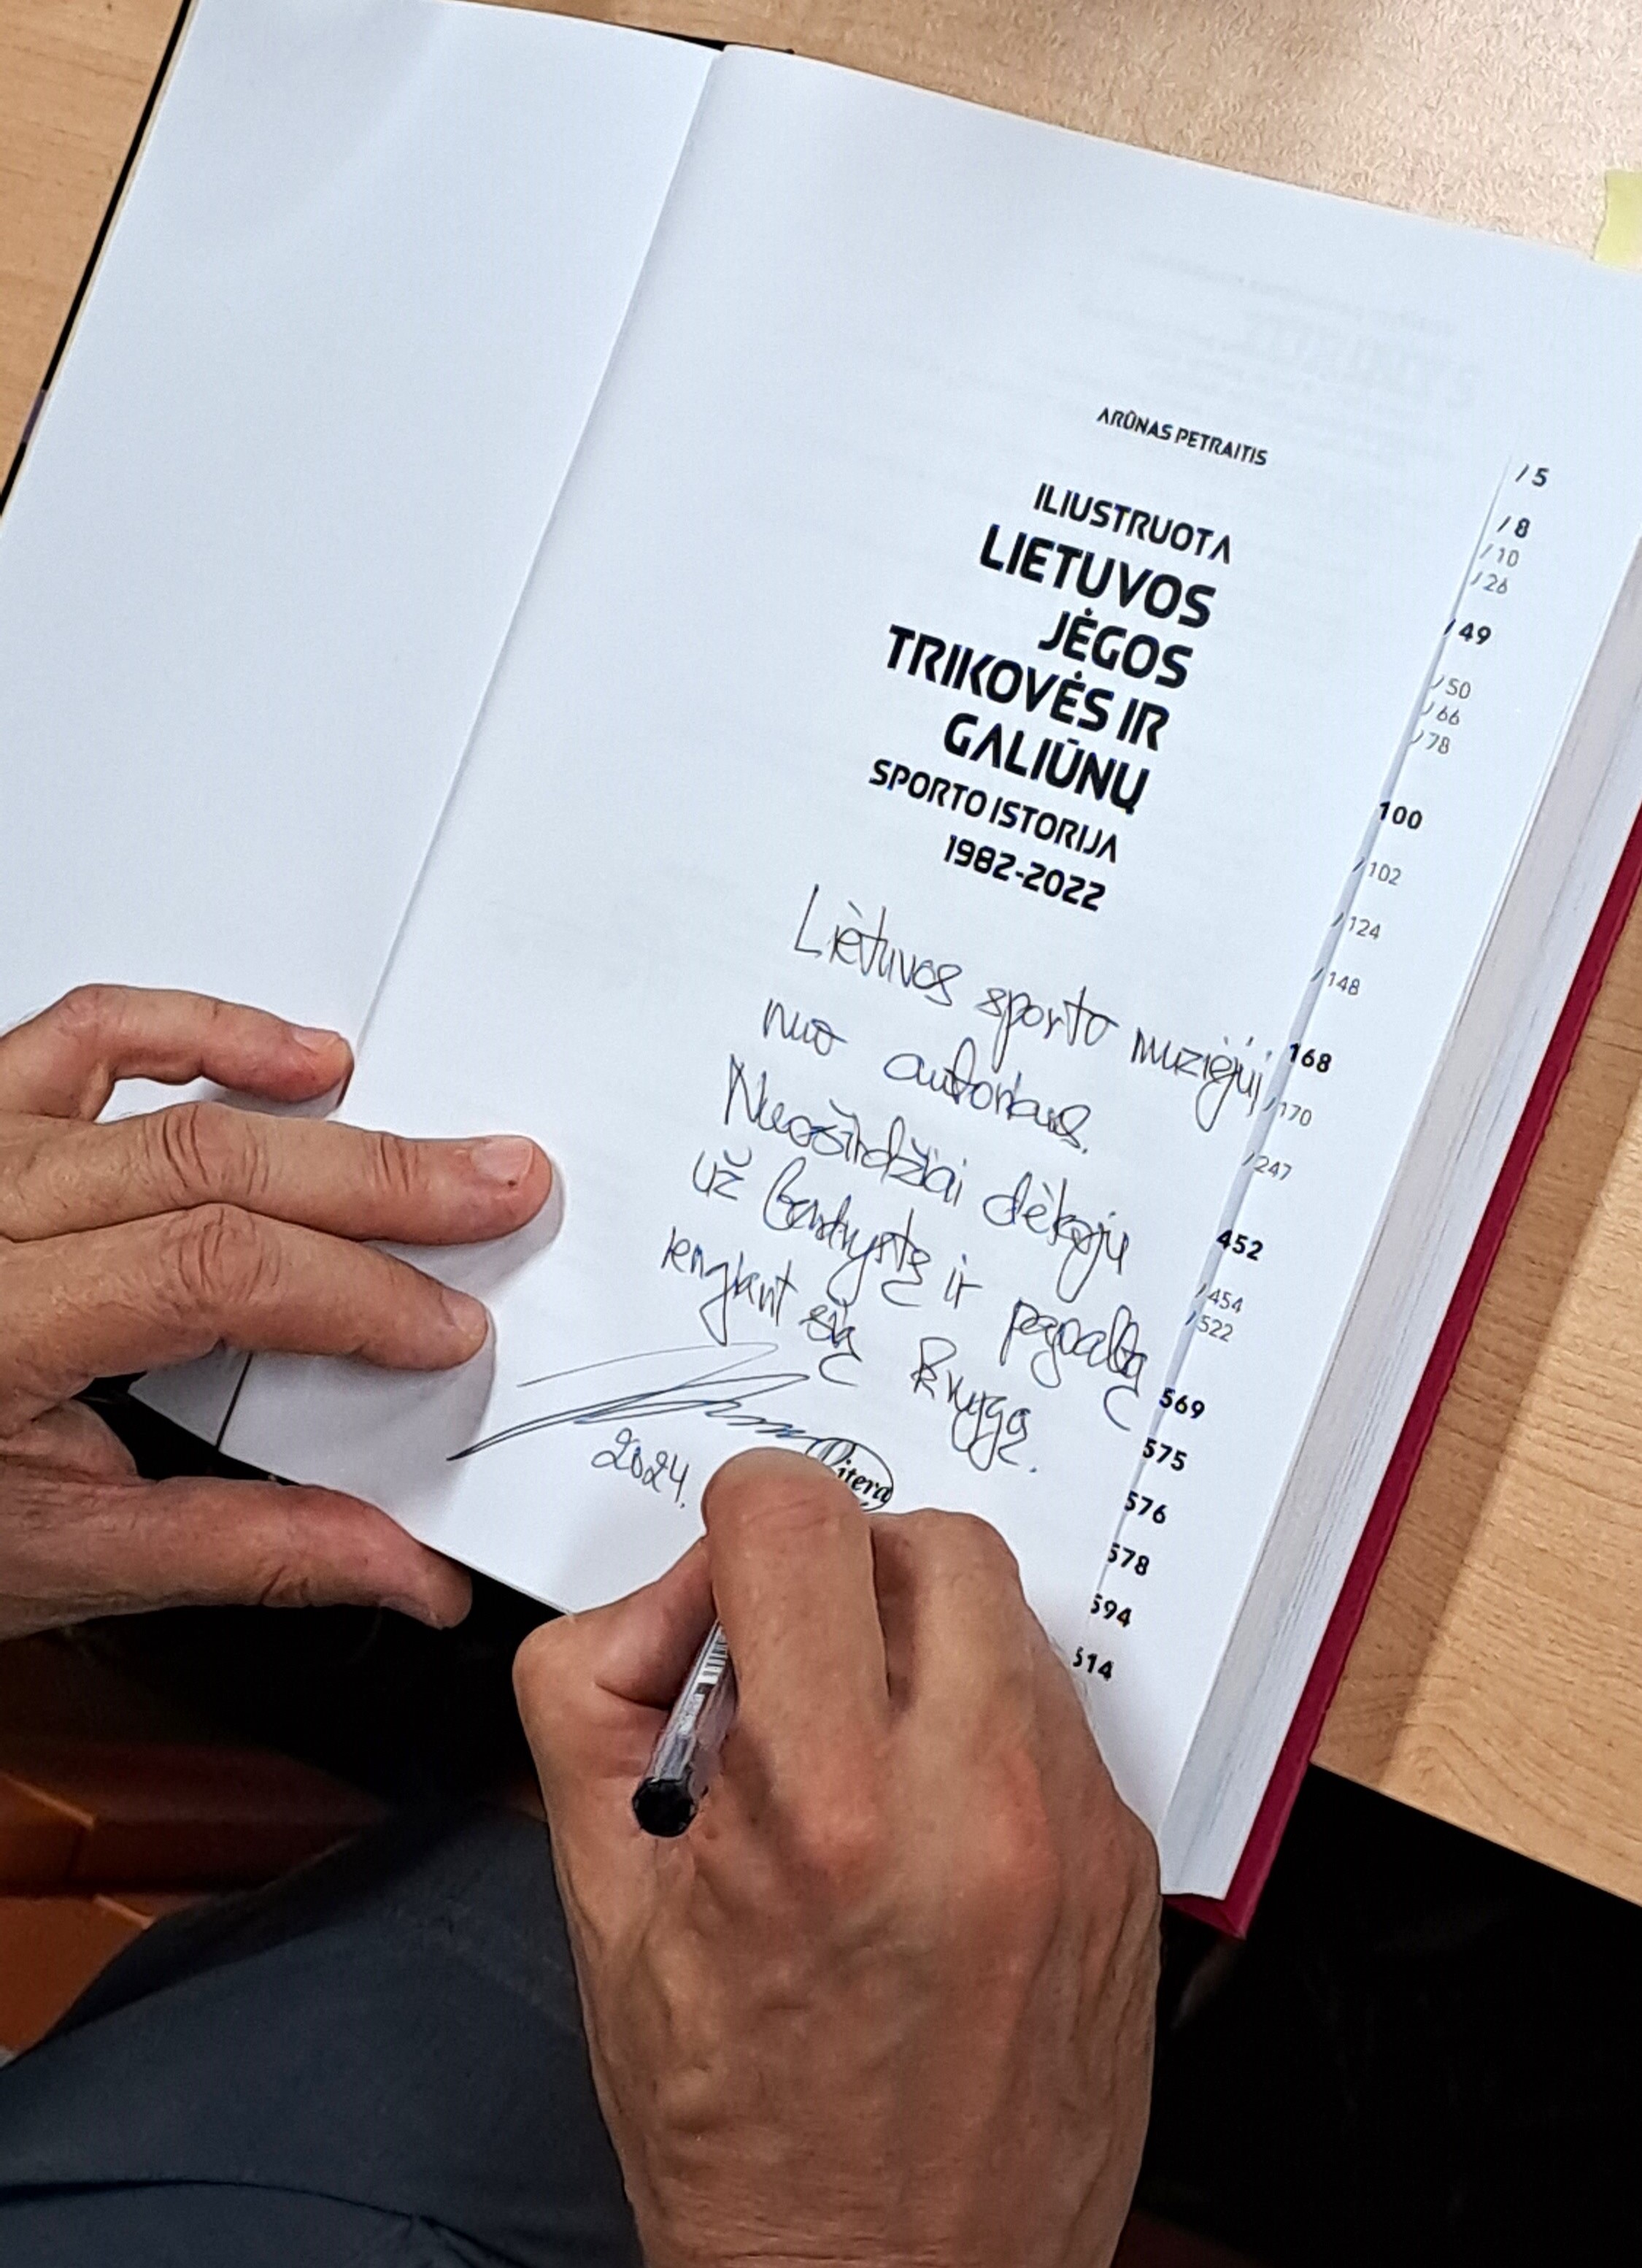 ARŪNAS PETRAITIS
ILIUSTRUOTA
LIETUVOS
JĖGOS
TRIKOVĖS IR
GALIŪNŲ
SPORTO ISTORIJA
1982-2022
Lietuvos sporto muziejui
nuo autoriaus.
Nuoširdžiai dėkoju
už bendrystę ir pagalbą
rengiant šią knygą.
2024.
Litera
/ 5
/ 8
/ 10
/ 26
/ 49
/ 50
/ 66
/ 78
100
/ 102
/ 124
/ 148
168
/ 170
/ 247
452
/ 454
/ 522
569
575
576
578
594